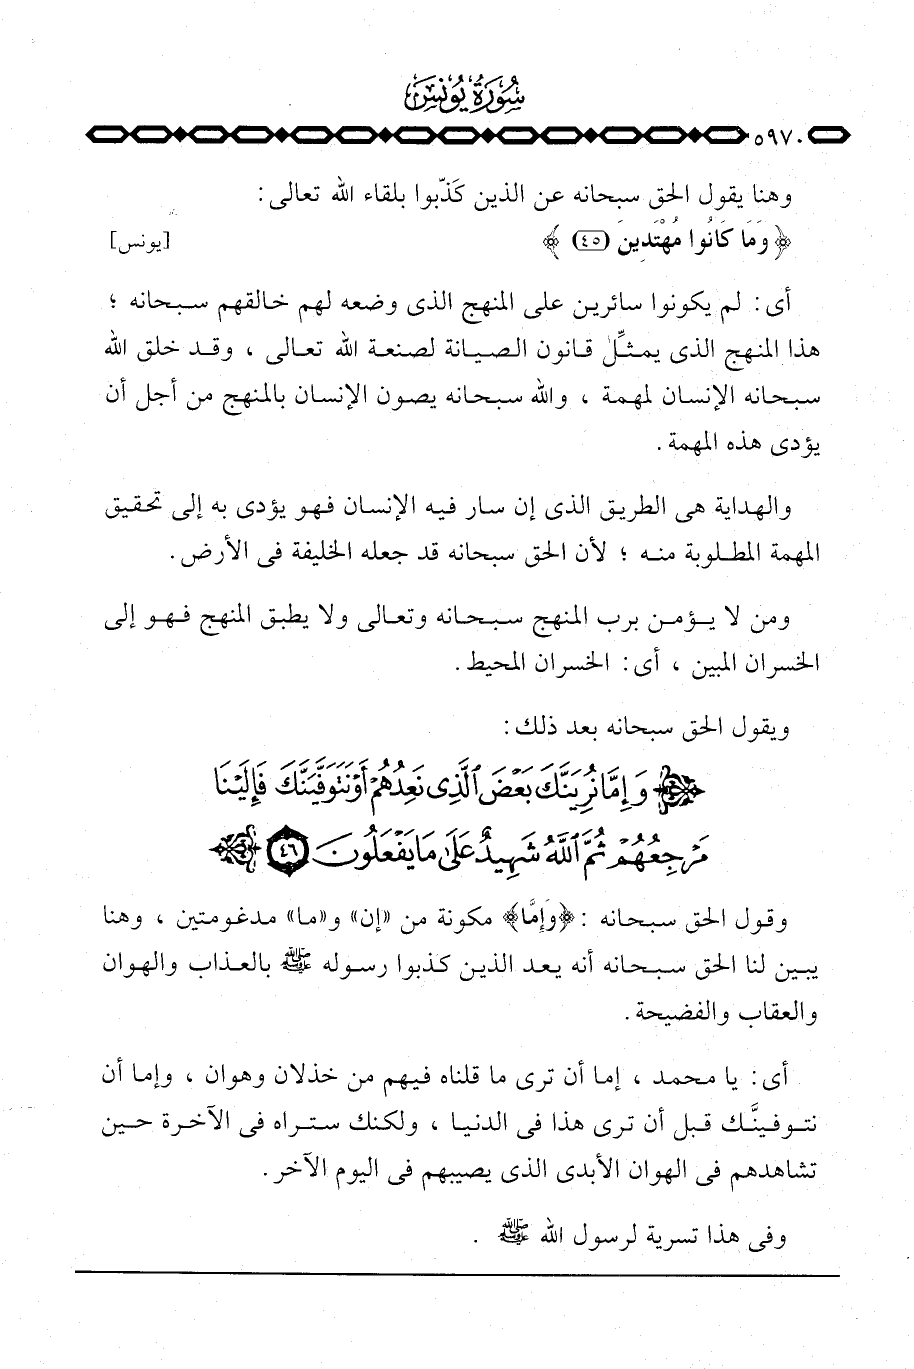 سُورَةُ يُونُسَ
٥٩٧٠
وهنا يقول الحق سبحانه عن الذين كَذَّبوا بلقاء الله تعالى :
﴿ وَمَا كَانُوا مُهْتَدِينَ (٤٥) ﴾ [يونس]
أى : لم يكونوا سائرين على المنهج الذى وضعه لهم خالقهم سبحانه ؛
هذا المنهج الذى يمثِّل قانون الصيانة لصنعة الله تعالى ، وقد خلق الله
سبحانه الإنسان لمهمة ، والله سبحانه يصون الإنسان بالمنهج من أجل أن
يؤدى هذه المهمة .
والهداية هى الطريق الذى إن سار فيه الإنسان فهو يؤدى به إلى تحقيق
المهمة المطلوبة منه ؛ لأن الحق سبحانه قد جعله الخليفة فى الأرض .
ومن لا يؤمن برب المنهج سبحانه وتعالى ولا يطبق المنهج فهو إلى
الخسران المبين ، أى : الخسران المحيط .
ويقول الحق سبحانه بعد ذلك :
﴿ وَإِمَّا نُرِيَنَّكَ بَعْضَ ٱلَّذِى نَعِدُهُمْ أَوْ نَتَوَفَّيَنَّكَ فَإِلَيْنَا
مَرْجِعُهُمْ ثُمَّ ٱللَّهُ شَهِيدٌ عَلَىٰ مَا يَفْعَلُونَ ٤٦ ﴾
وقول الحق سبحانه : ﴿وَإِمَّا﴾ مكونة من «إن» و«ما» مدغومتين ، وهنا
يبين لنا الحق سبحانه أنه يعد الذين كذبوا رسوله ﷺ بالعذاب والهوان
والعقاب والفضيحة .
أى : يا محمد ، إما أن ترى ما قلناه فيهم من خذلان وهوان ، وإما أن
نتوفينَّك قبل أن ترى هذا فى الدنيا ، ولكنك ستراه فى الآخرة حين
تشاهدهم فى الهوان الأبدى الذى يصيبهم فى اليوم الآخر .
وفى هذا تسرية لرسول الله ﷺ .